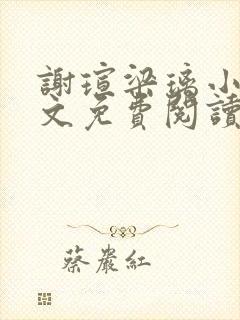 謝瑄梁璃小
文免費閱讀
蔡嚴紅